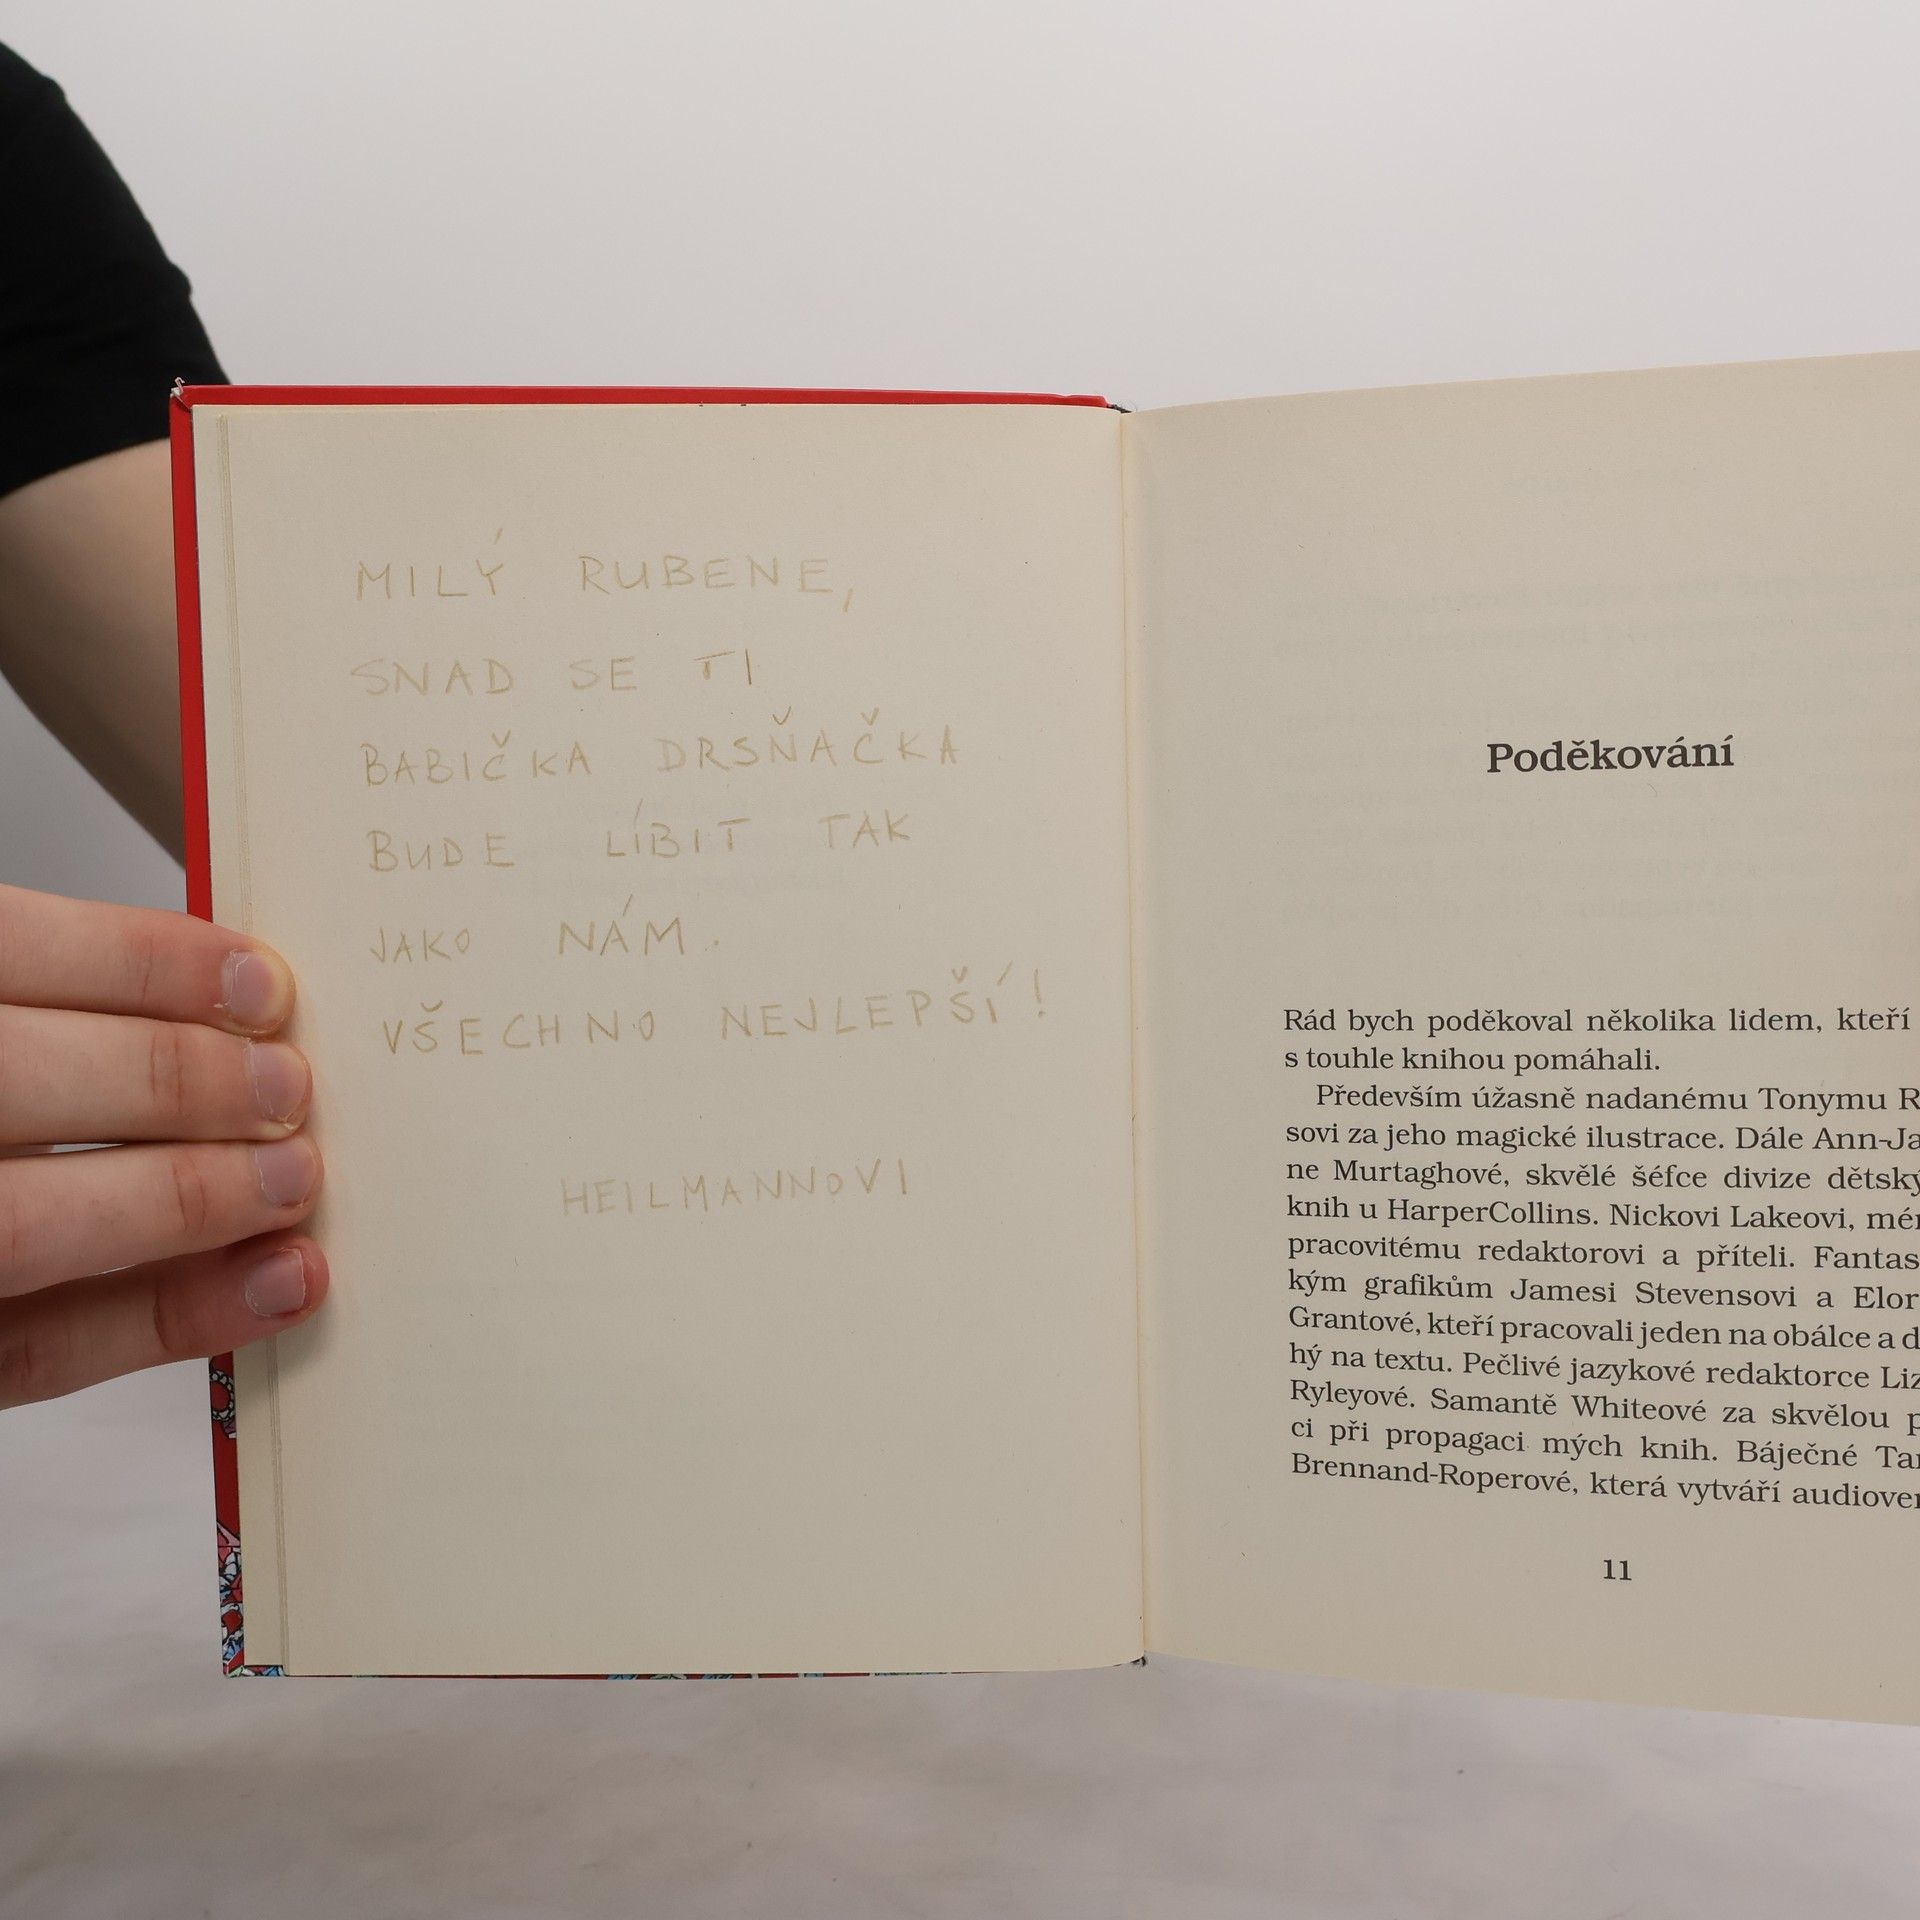 MILÝ RUBENE,
SNAD SE TI
BABIČKA DRSŇAČKA
BUDE LÍBIT TAK
JAKO NÁM.
VŠECHNO NEJLEPŠÍ!
HEILMANNOVI
Poděkování
Rád bych poděkoval několika lidem, kteří
s touhle knihou pomáhali.
Především úžasně nadanému Tonymu R
sovi za jeho magické ilustrace. Dále Ann-Ja
ne Murtaghové, skvělé šéfce divize dětský
knih u HarperCollins. Nickovi Lakeovi, mé
pracovitému redaktorovi a příteli. Fantas
kým grafikům Jamesi Stevensovi a Elor
Grantové, kteří pracovali jeden na obálce a d
hý na textu. Pečlivé jazykové redaktorce Liz
Ryleyové. Samantě Whiteové za skvělou p
ci při propagaci mých knih. Báječné Ta
Brennand-Roperové, která vytváří audiover
11